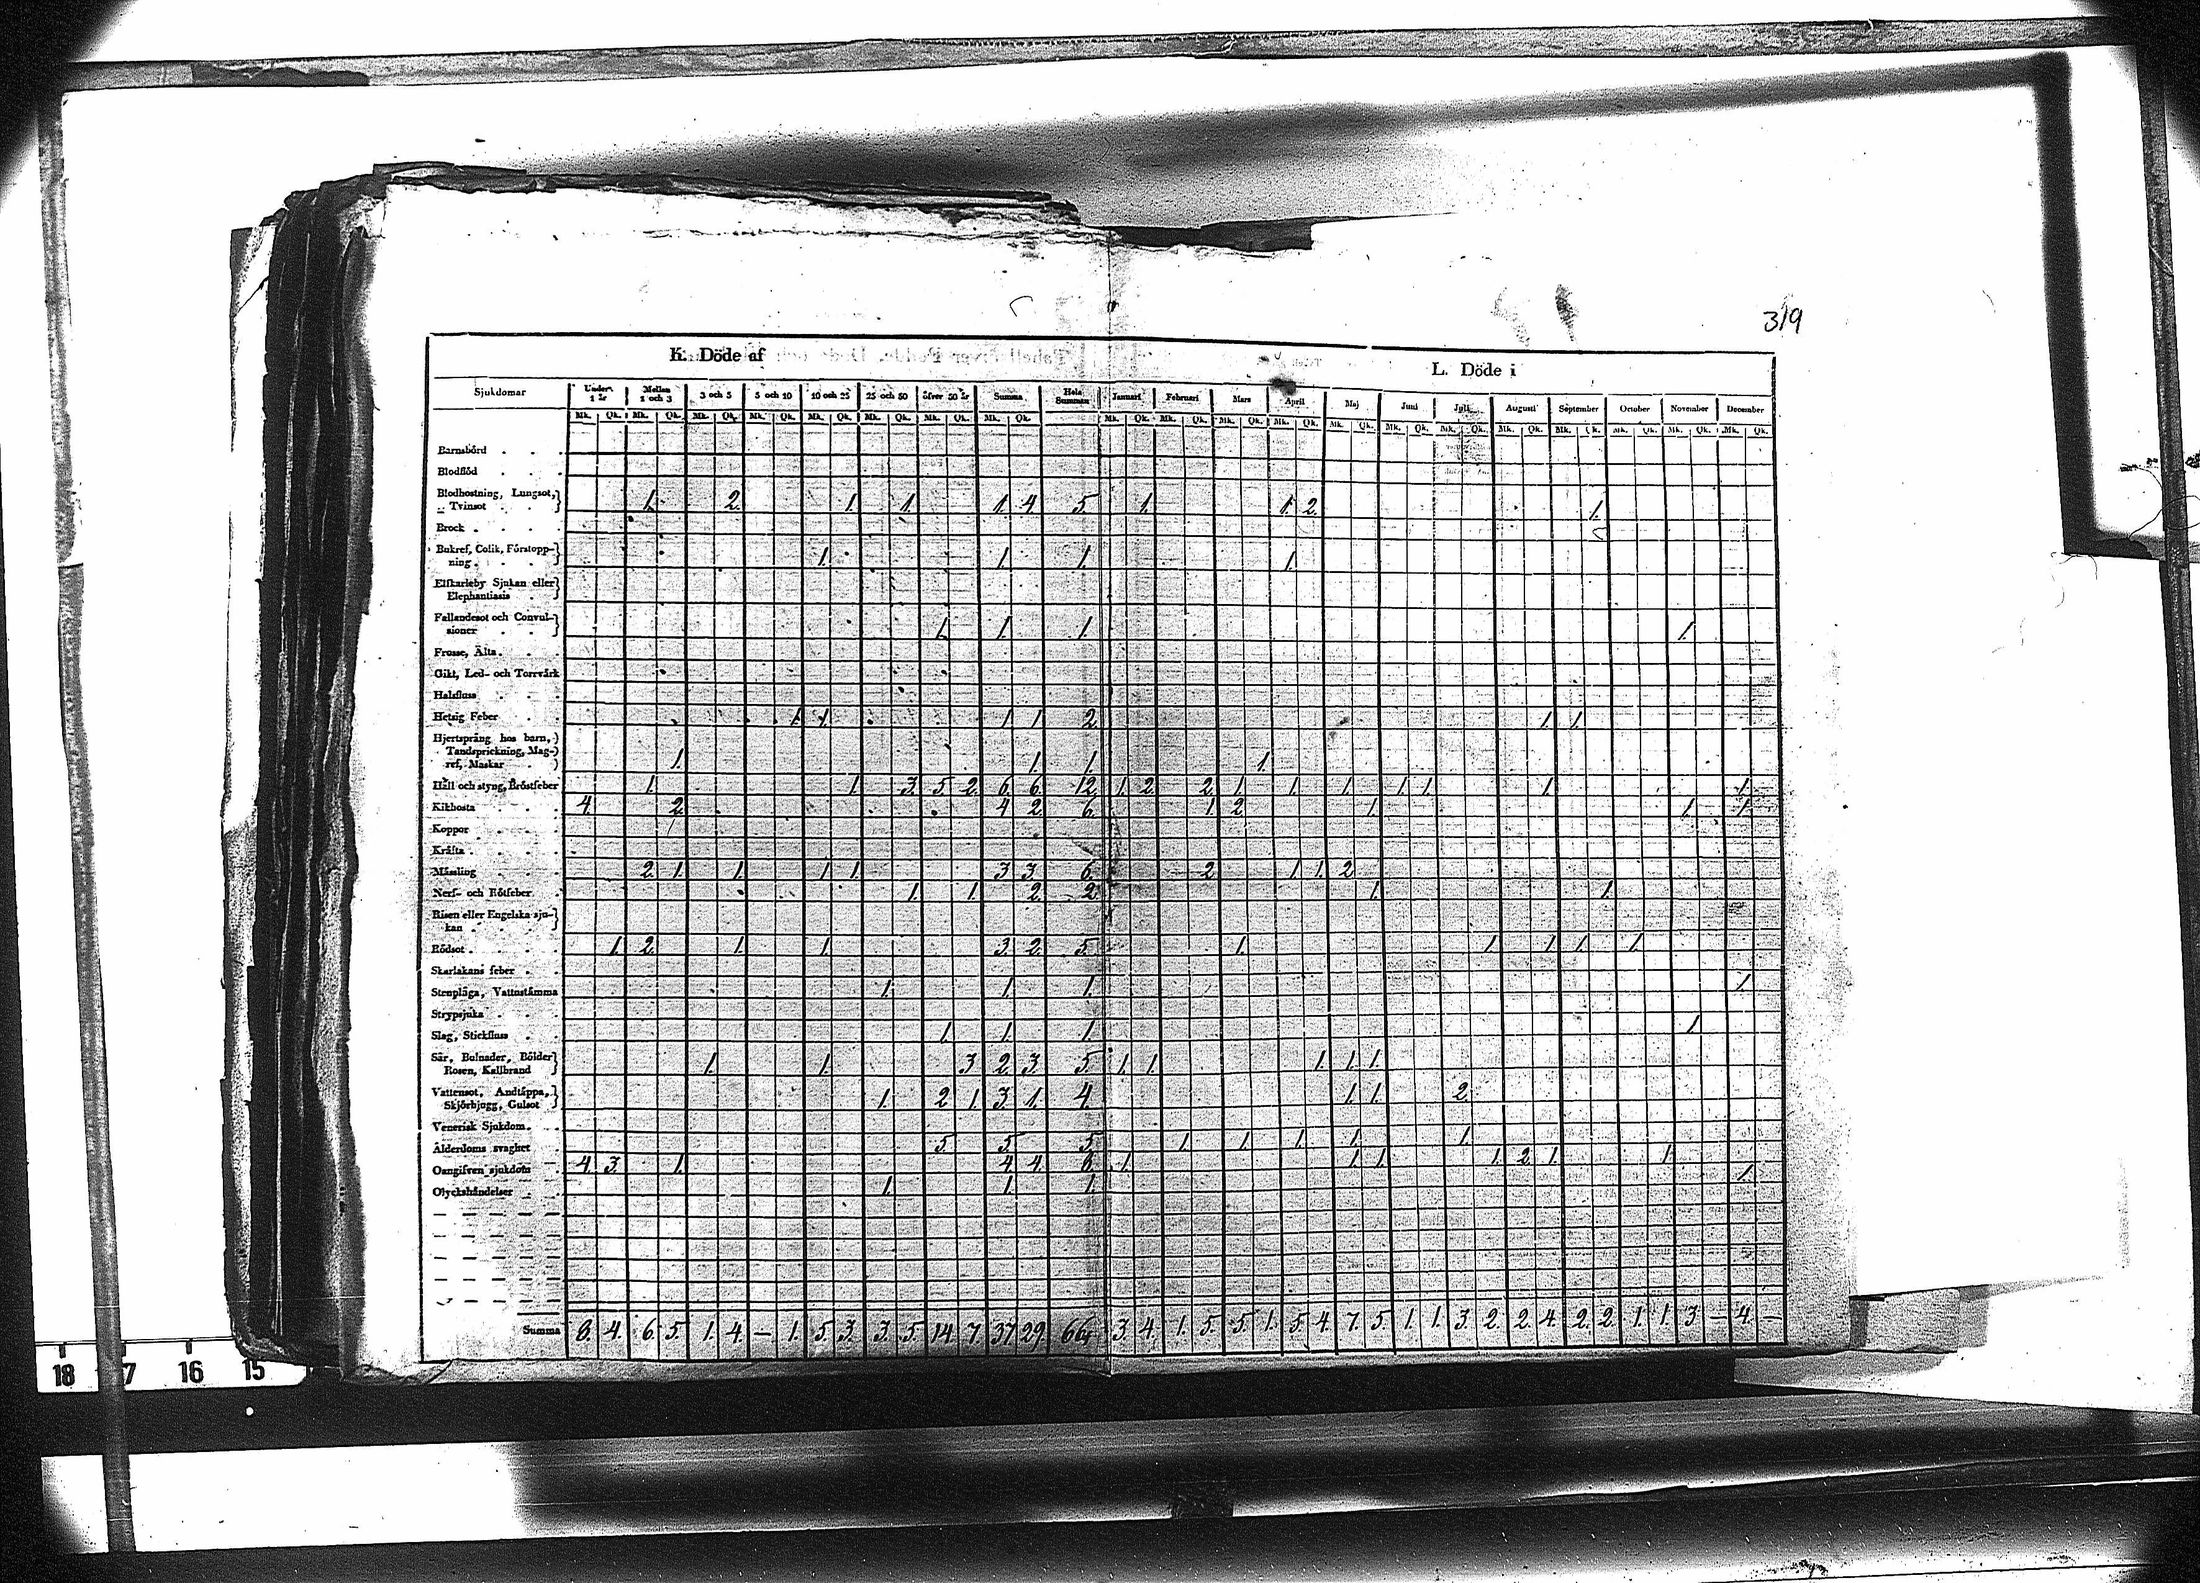 319
K. Döde af
L. Döde i
Sjukdomar Under 1 år Mellan 1 och 3 3 och 5 5 och 10 10 och 25 25 och 50 öfver 50 år Summa Hela Summan Januari Februari Mars April Maj Juni Juli Augusti September October November December
Mk. Qk. Mk. Qk. Mk. Qk. Mk. Qk. Mk. Qk. Mk. Qk. Mk. Qk. Mk. Qk. Mk. Qk. Mk. Qk. Mk. Qk. Mk. Qk. Mk. Qk. Mk. Qk. Mk. Qk. Mk. Qk. Mk. Qk. Mk. Qk. Mk. Qk. Mk. Qk.
Barnsbörd
Blodflöd
Blodhostning, Lungsot,
Tvinsot 1. 2. 1. 1. 1. 4. 5. 1. 1. 2. 1.
Brock
Bukref, Colik, Förstopp-
ning 1. 1. 1. 1.
Elfkarleby Sjukan eller
Elephantiasis
Fallandesot och Convul-
sioner 1. 1. 1. 1.
Frosse, Älta
Gikt, Led- och Torrvärk
Halsfluss
Hetsig Feber 1. 1. 1. 1. 2. 1. 1.
Hjertsprång hos barn,
Tandsprickning, Mag-
ref, Maskar 1. 1. 1. 1.
Håll och styng, Bröstfeber 1. 1. 3. 5. 2. 6. 6. 12. 1. 2. 2. 1. 1. 1. 1. 1. 1. 1.
Kikhosta 4. 2. 4. 2. 6. 1. 2. 1. 1. 1.
Koppor
Kräfta
Mässling 2. 1. 1. 1. 1. 3. 3. 6. 2. 1. 1. 2.
Nerf- och Rötfeber 1. 1. 2. 2. 1. 1.
Risen eller Engelska sju-
kan
Rödsot 1. 2. 1. 1. 3. 2. 5. 1. 1. 1. 1. 1.
Skarlakans feber
Stenplåga, Vattustämma 1. 1. 1. 1.
Strypsjuka
Slag, Stickfluss 1. 1. 1. 1.
Sår, Bulnader, Bölder
Rosen, Kallbrand 1. 1. 3. 2. 3. 5. 1. 1. 1. 1. 1.
Vattensot, Andtäppa,
Skjörbjugg, Gulsot 1. 2. 1. 3. 1. 4. 1. 1. 2.
Venerisk Sjukdom
Ålderdoms svaghet 5. 5. 5. 1. 1. 1. 1. 1.
Oangifven sjukdom 4. 3. 1. 4. 4. 8. 1. 1. 1. 1. 2. 1. 1.
Olyckshändelser 1. 1. 1. 1.
Summa 8. 4. 6. 5. 1. 4. – 1. 5. 3. 3. 5. 14. 7. 37. 29. 66. 3. 4. 1. 5. 5. 1. 5. 4. 7. 5. 1. 1. 3. 2. 2. 4. 2. 2. 1. 1. 3. – 4. –
18 17 16 15